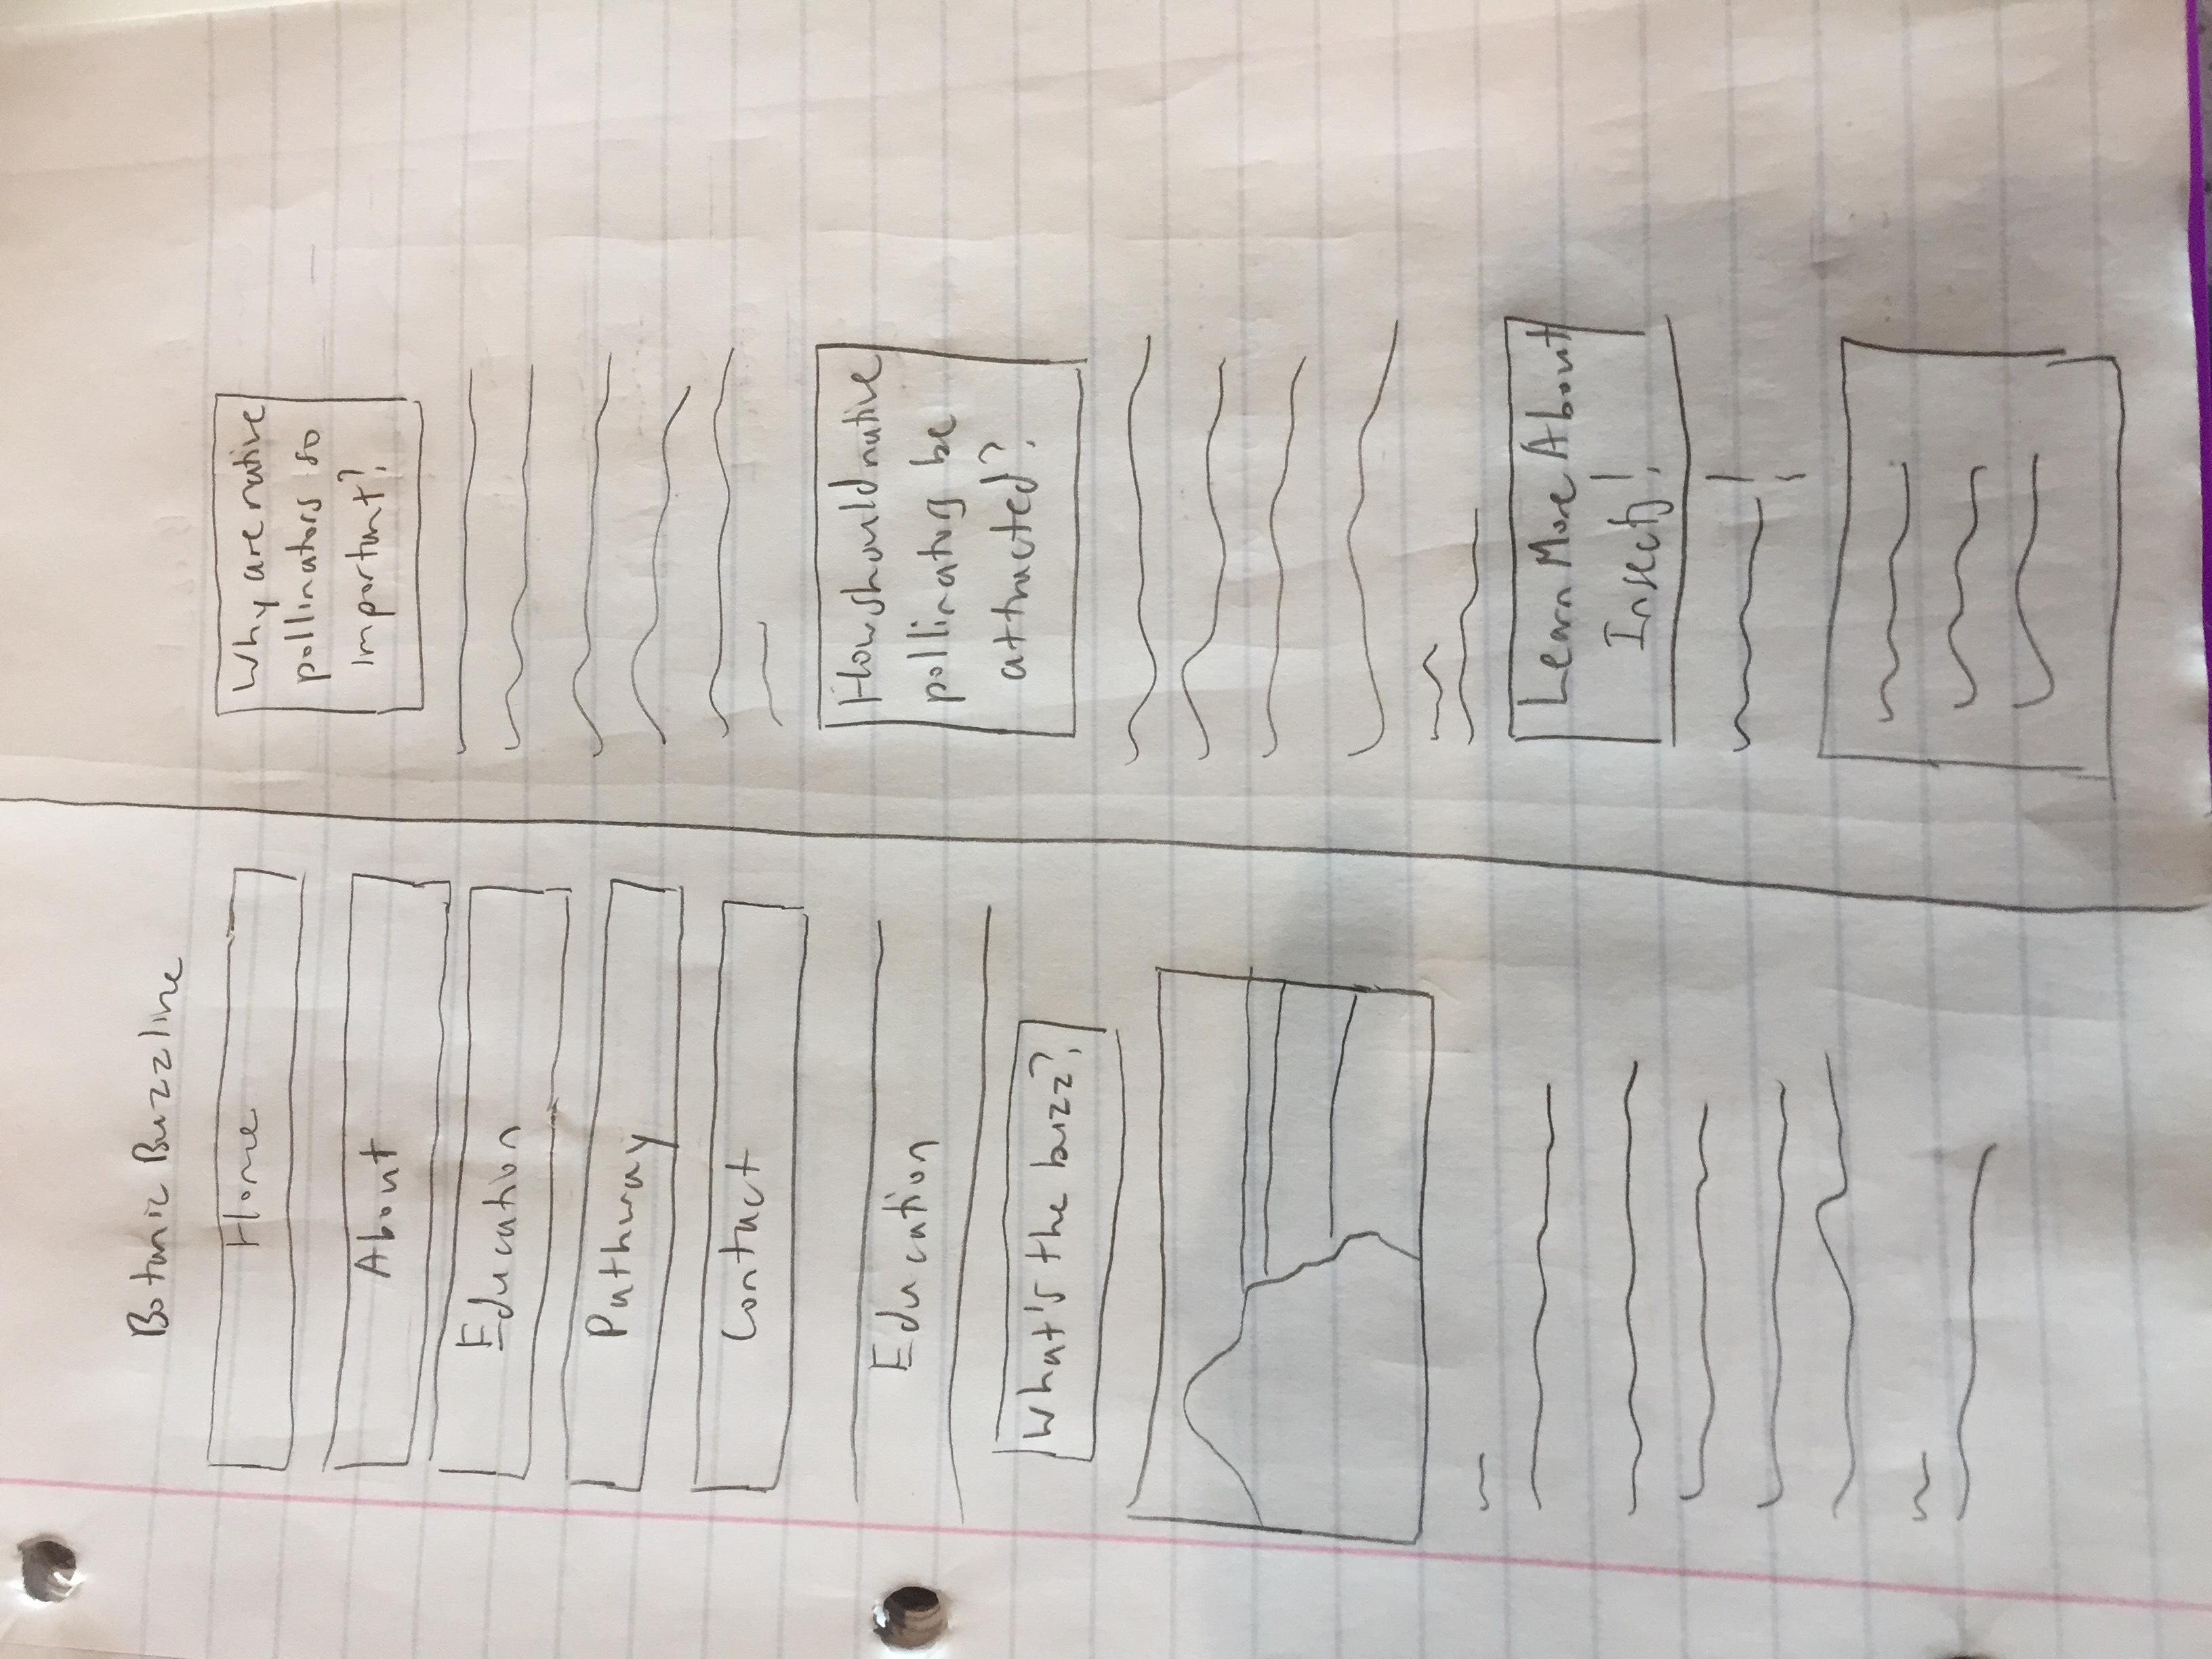 Botanic Buzzline
Home
About
Education
Pathway
Contact
Education
What's the buzz?
Why are native
pollinators so
important?
How should native
pollinators be
attracted?
Learn More About
Insects!
!